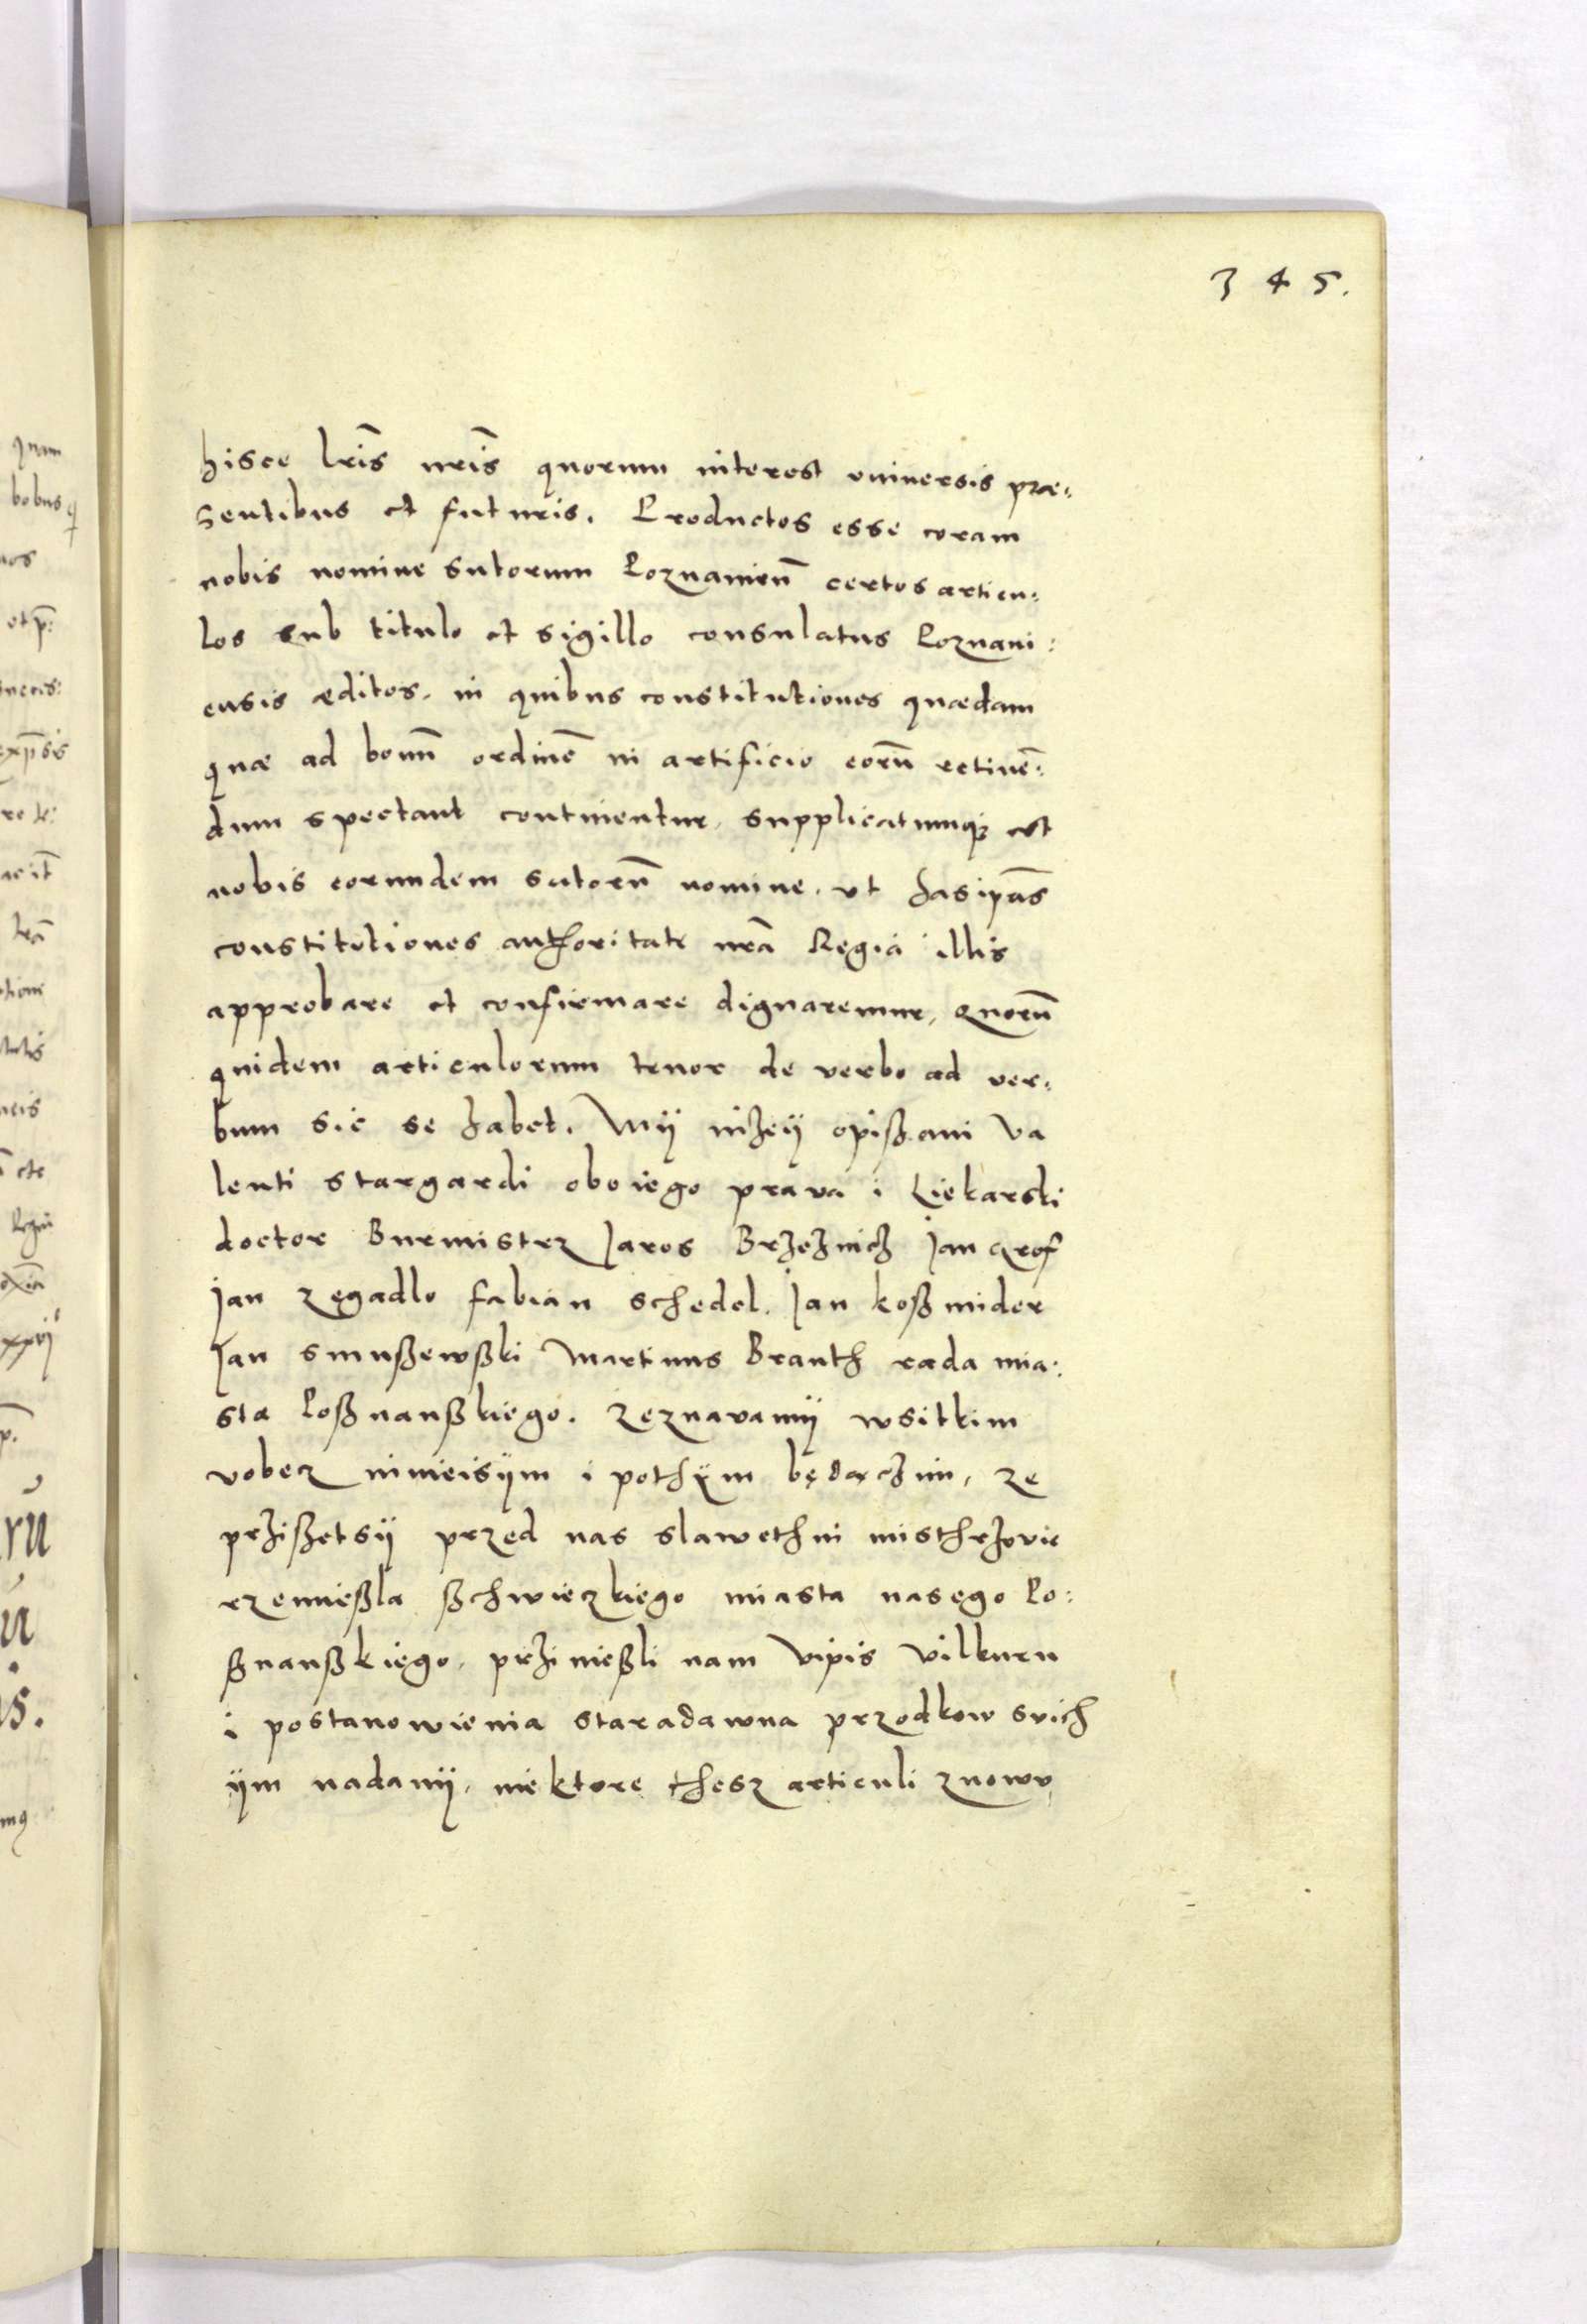 345.
hisce lr̃is nr̃is quorum interest vniuersis præ:
sentibus et futuris. Productos esse coram
nobis nomine sutorum Poznanien̄ certos articu:
los sub titulo et sigillo consulatus Poznani:
ensis æditos. in quibus constitutiones quædam
quæ ad bonū ordinē in artificio eorū retinē:
dum spectant continentur, supplicatumq3 est
nobis eorundem sutorū nomine. vt hasip̃as
constitutiones authoritate nr̃a Regia illis
approbare et confirmare dignaremur, quorū
quidem articulorum tenor de verbo ad ver:
bum sic se habet. Mÿ niżeÿ opißani Va
lenti stargardi oboiego prava i Liekarski
doctor Burmistrz Jaros Brżeżnich Jan Grof
Jan zegadlo fabian schedel. Jan koßmider
Jan smußewßki Martinus Branth rada mia:
sta Poßnanßkiego. zeznavamÿ wsitkim
vobecz ninieisÿm i pothÿm będączim, ze
prżißetsÿ przed nas slawethni misthrżovie
rzemießla ßchwieczkiego miasta nasego Po:
ßnanßkiego, prżinießli nam Vipis Vilkuru
i postanowienia staradawna przodkow svich
ÿm nadanÿ, niektore thesz articuli znowv